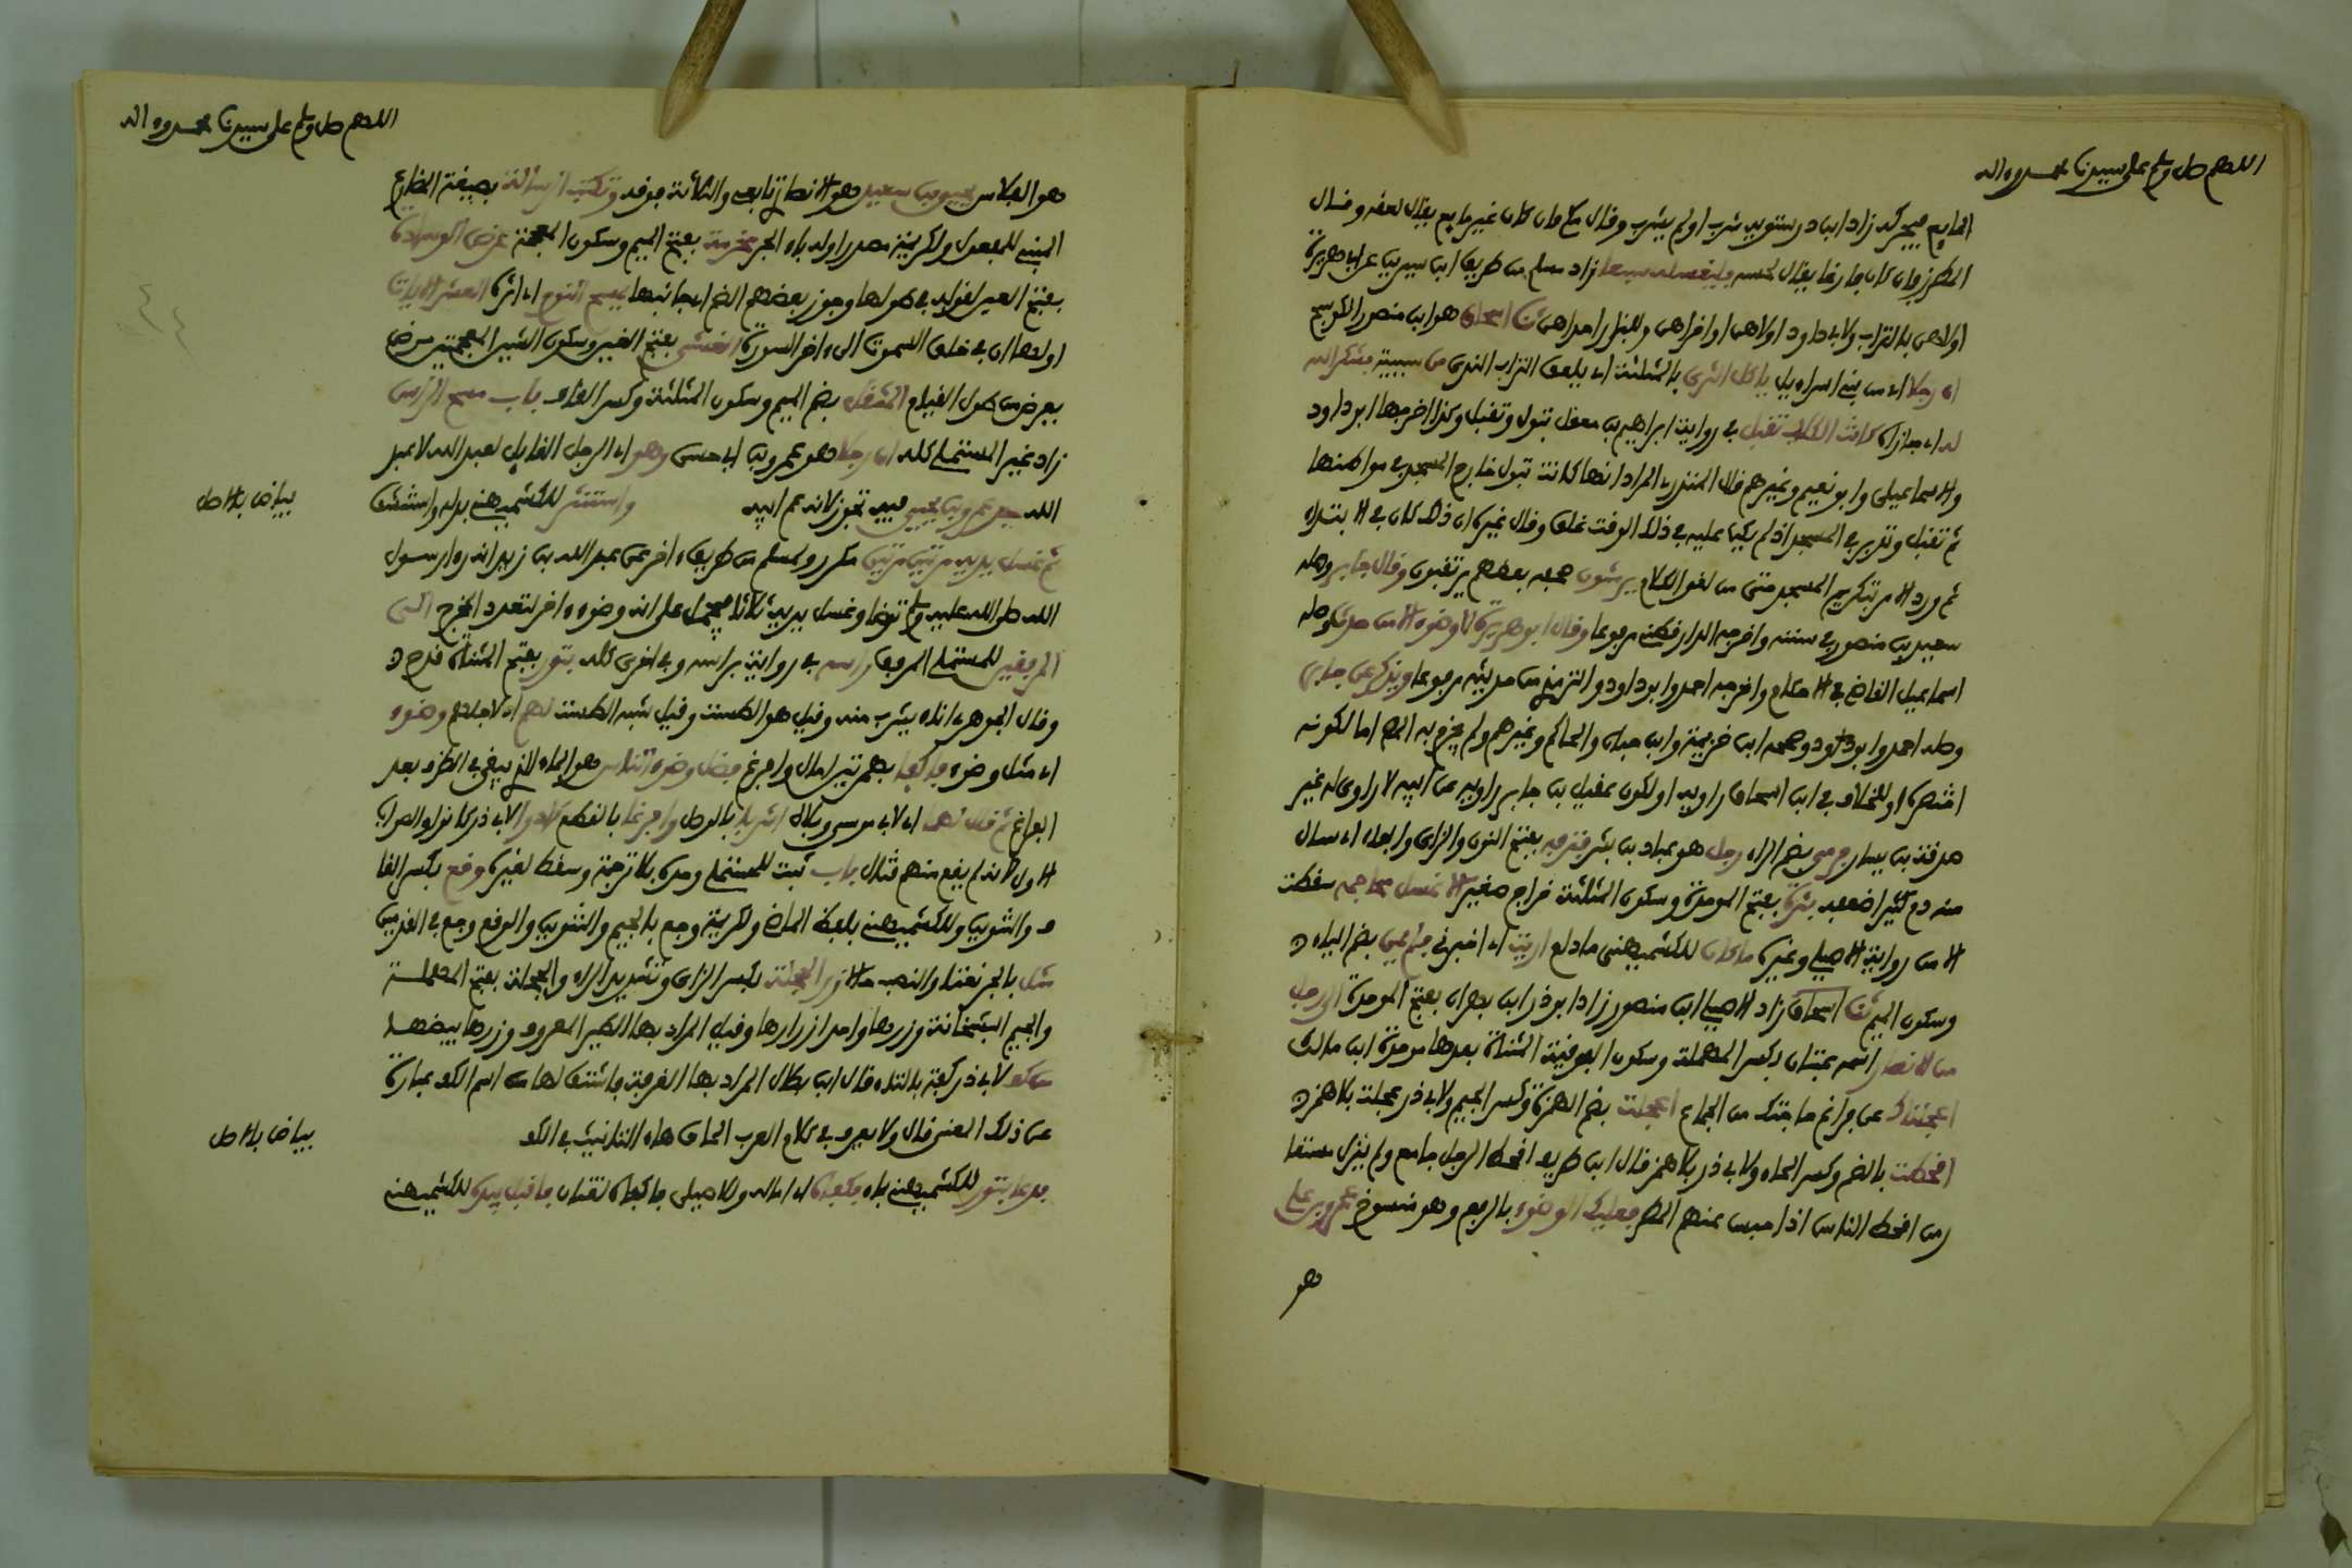 اللهم صل وسلم على سيدنا محمد وءاله
المايع فيحركه زاد ابن درستويه شرب او لم يشرب وقال مكي فان كان غير مايع يقال لعقه وقال
المطرزي فان كان فارغا يقال لحسه فليغسله سبعا زاد مسلم من طريق ابن سيرين عن ابي هريرة
اولاهن بالتراب ولابي داود اولاهن او اخراهن وللبزار احداهن ثنا اسحاق هو ابن منصور الكوسج
ان رجلا اي من بني اسراءيل ياكل الثرى بالمثلثة اي يلعق التراب الندي من سببية فشكر الله
له اي جازاه كانت الكلاب تقبل في رواية ابراهيم بن معقل تبول وتقبل وكذا اخرجها ابو داود
والاسماعيلي وابو نعيم وغيرهم قال المنذري المراد انها كانت تبول خارج المسجد في مواطنها
ثم تقبل وتدبر في المسجد اذ لم يكن عليه في ذلك الوقت غلق وقال غيره ان ذلك كان في الابتداء
ثم ورد الامر بتكريم المسجد حتى من لغو الكلام يرشون صحفه بعضهم يرتقبون وقال جابر وصله
سعيد بن منصور في سننه واخرجه الدارقطني مرفوعا وقال ابو هريرة لا وضوء الا من حدث وصله
اسماعيل القاضي في الاحكام واخرجه احمد وابو داود والترمذي من حديثه مرفوعا ويذكر عن جابر
وصله احمد وابو داود وصححه ابن خزيمة وابن حبان والحاكم وغيرهم ولم يجزم به المص اما لكونه
اختصره او للخلاف في ابن اسحاق راويه او لكون عقيل بن جابر راويه عن ابيه لا راوي له غير
صدقة بن يسار فرمي بضم الراء رجل هو عباد بن بشر فنزفه بفتح النون والزاي والفاء اي سال
منه دم كثير اضعفه بثرة بفتح الموحدة وسكون المثلثة خراج صغير الا غسل محاجمه سقطت
الا من رواية الاصيلي وغيره ما كان للكشميهني ما دام ارايت اي اخبرني فلم يمن بضم الياء
وسكون الميم ثنا اسحاق زاد الاصيلي ابن منصور زاد ابو ذر ابن بهرام بفتح الموحدة الى رجل
من الانصار اسمه عتبان بكسر المهملة وسكون الفوقية المثناة بعدها موحدة ابن مالك
اعجلناك عن فراغ حاجتك من الجماع اعجلت بضم الهمزة وكسر الجيم ولابي ذر عجلت بلا همزة
اقحطت بالضم وكسر الحاء ولابي ذر بلا همز قال ابن طريف اقحط الرجل جامع ولم ينزل مستعار
من اقحط الناس اذا حبس عنهم المطر فعليك الوضوء بالرفع وهو منسوخ عمرو بن علي
هو
اللهم صل وسلم على سيدنا محمد وءاله
هو الفلاس يحيى بن سعيد هو الانصاري تابعي والثلاثة فوقه وتكتب الرسالة بصيغة المضارع
المبني للمفعول ولكريمة مصدرا وله باء الجر مخرمة بفتح الميم وسكون المعجمة عرض الوسادة
بفتح العين لقوله في طولها وجوز بعضهم الضم اي جانبها يمسح النوم اي اثره العشر الايات
اولها ان في خلق السموت الى ءاخر السورة الغشي بفتح الغين وسكون الشين المعجمتين مرض
يعرض من طول القيام المثقل بضم الميم وسكون المثلثة وكسر القاف باب مسح الراس
زاد غير المستملي كله ان رجلا هو عمرو بن ابي حسن وهو اي الرجل القايل لعبد الله لا عبد
الله جد عمرو بن يحيى فيه تجوز لانه عم ابيه واستنثر للكشميهني بدله واستنشق
بياض بالاصل
ثم غسل يديه مرتين مرتين مكرر ولمسلم من طريق ءاخر عن عبد الله بن زيد انه راى رسول
الله صلى الله عليه وسلم توضا وغسل يديه ثلاثا فيحمل على انه وضوء ءاخر لتعدد المخرج الى
المرفقين للمستملي المرفق راسه في رواية براسه وفي اخرى كله بتور بفتح المثناة قدح
وقال الجوهري اناء يشرب منه وقيل هو الطست وقيل شبه الطست لهم اي لاجلهم وضوء
اي مثل وضوء فاكفا بهمزتين امال وافرغ فضل وضوء الناس هو الماء الذي يبقى في الظرف بعد
الفراغ ثم قال لهما اي لابي موسى وبلال اشربا بالوصل وافرغا بالقطع كادوا لابي ذر كانوا والصواب
الاول لانه لم يقع منهم قتال باب ثبت للمستملي وحده بلا ترجمة وسقط لغيره وقع بكسر القا
ف والتنوين وللكشميهني بلفظ الماضي ولكريمة وجع بالجيم والتنوين والوقع وجع في القدمين
مثل بالجر نعتا والنصب حالا زر الحجلة بكسر الزاي وتشديد الراء والحجلة بفتح المهملة
والجيم البشخانة وزرها واحد ازرارها وقيل المراد بها الطير المعروف وزرها بيضها
من كف لابي ذر كفة بالتاء قال ابن بطال المراد بها الغرفة فاشتق لها من اسم الكف عبارة
عن ذلك المعنى قال ولا يعرف في كلام العرب الحاق هاء التانيث في الكف
بياض بالاصل
فدعا بتور للكشميهني بماء فكفاه اي اماله وللاصيلي فاكفاه لغتان فاقبل بيده للكشميهني